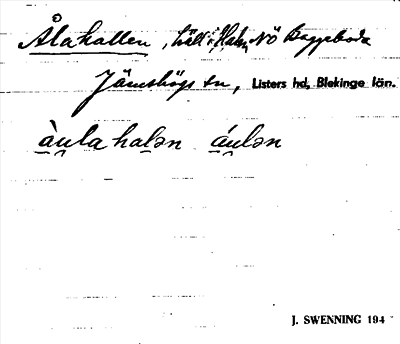 Ålahallen, häll i Halen NÖ Baggeboda
Jämshögs sn, Listers hd, Blekinge län.
àu̯la halən áu̯lən
J. SWENNING 194